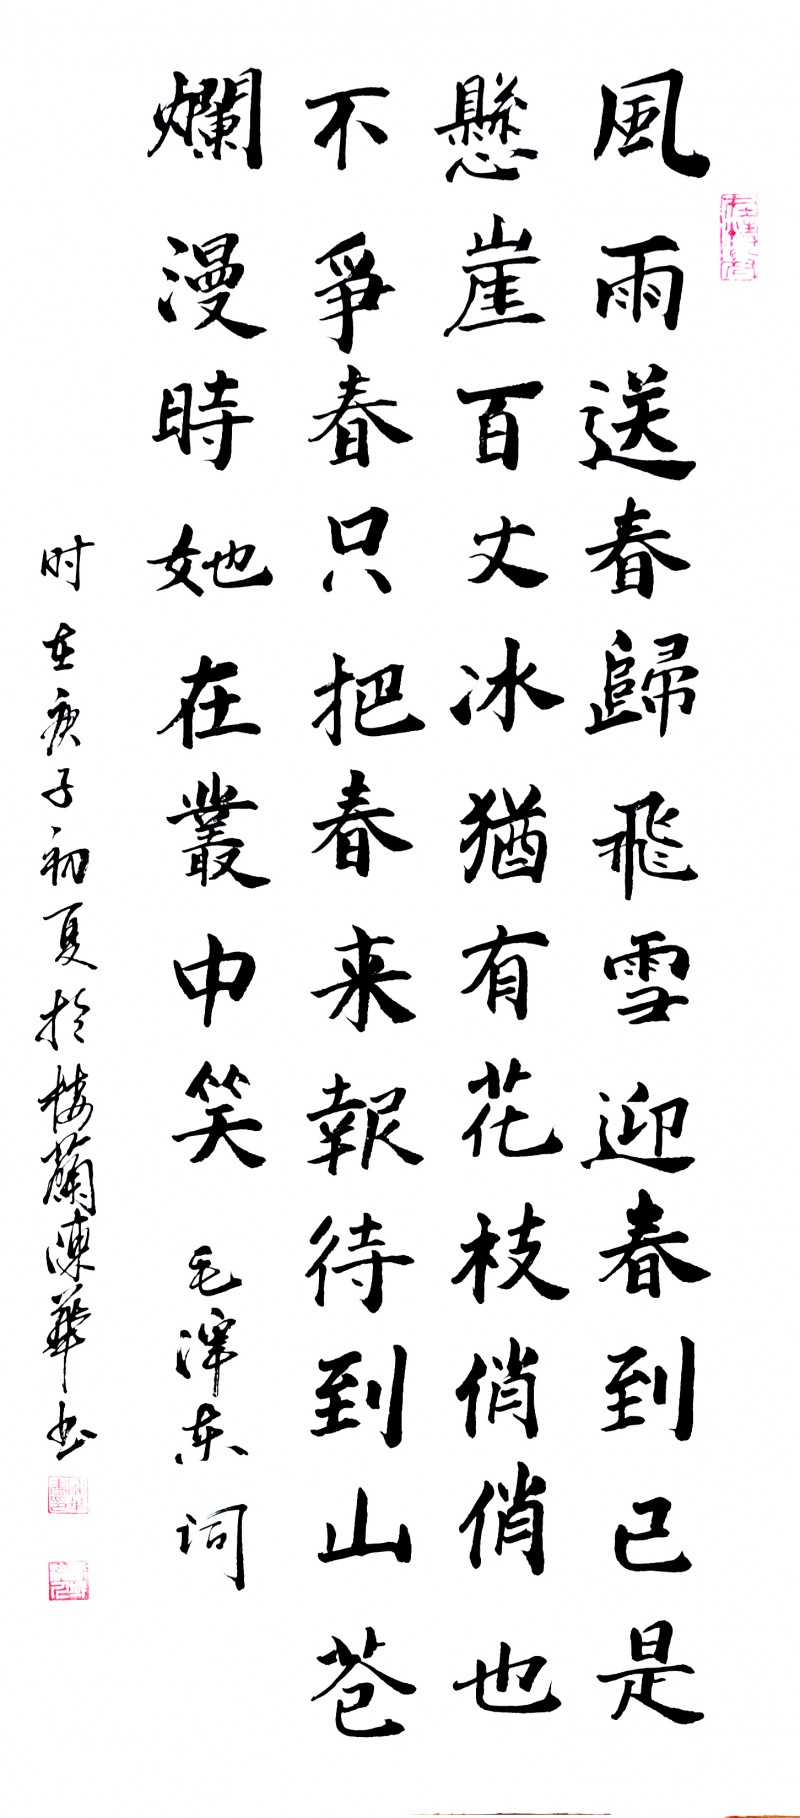 風雨送春歸飛雪迎春到已是
懸崖百丈冰猶有花枝俏俏也
不爭春只把春来報待到山苍
爛漫時她在叢中笑 毛泽东词
时在庚子初夏於楼蘭陳華书